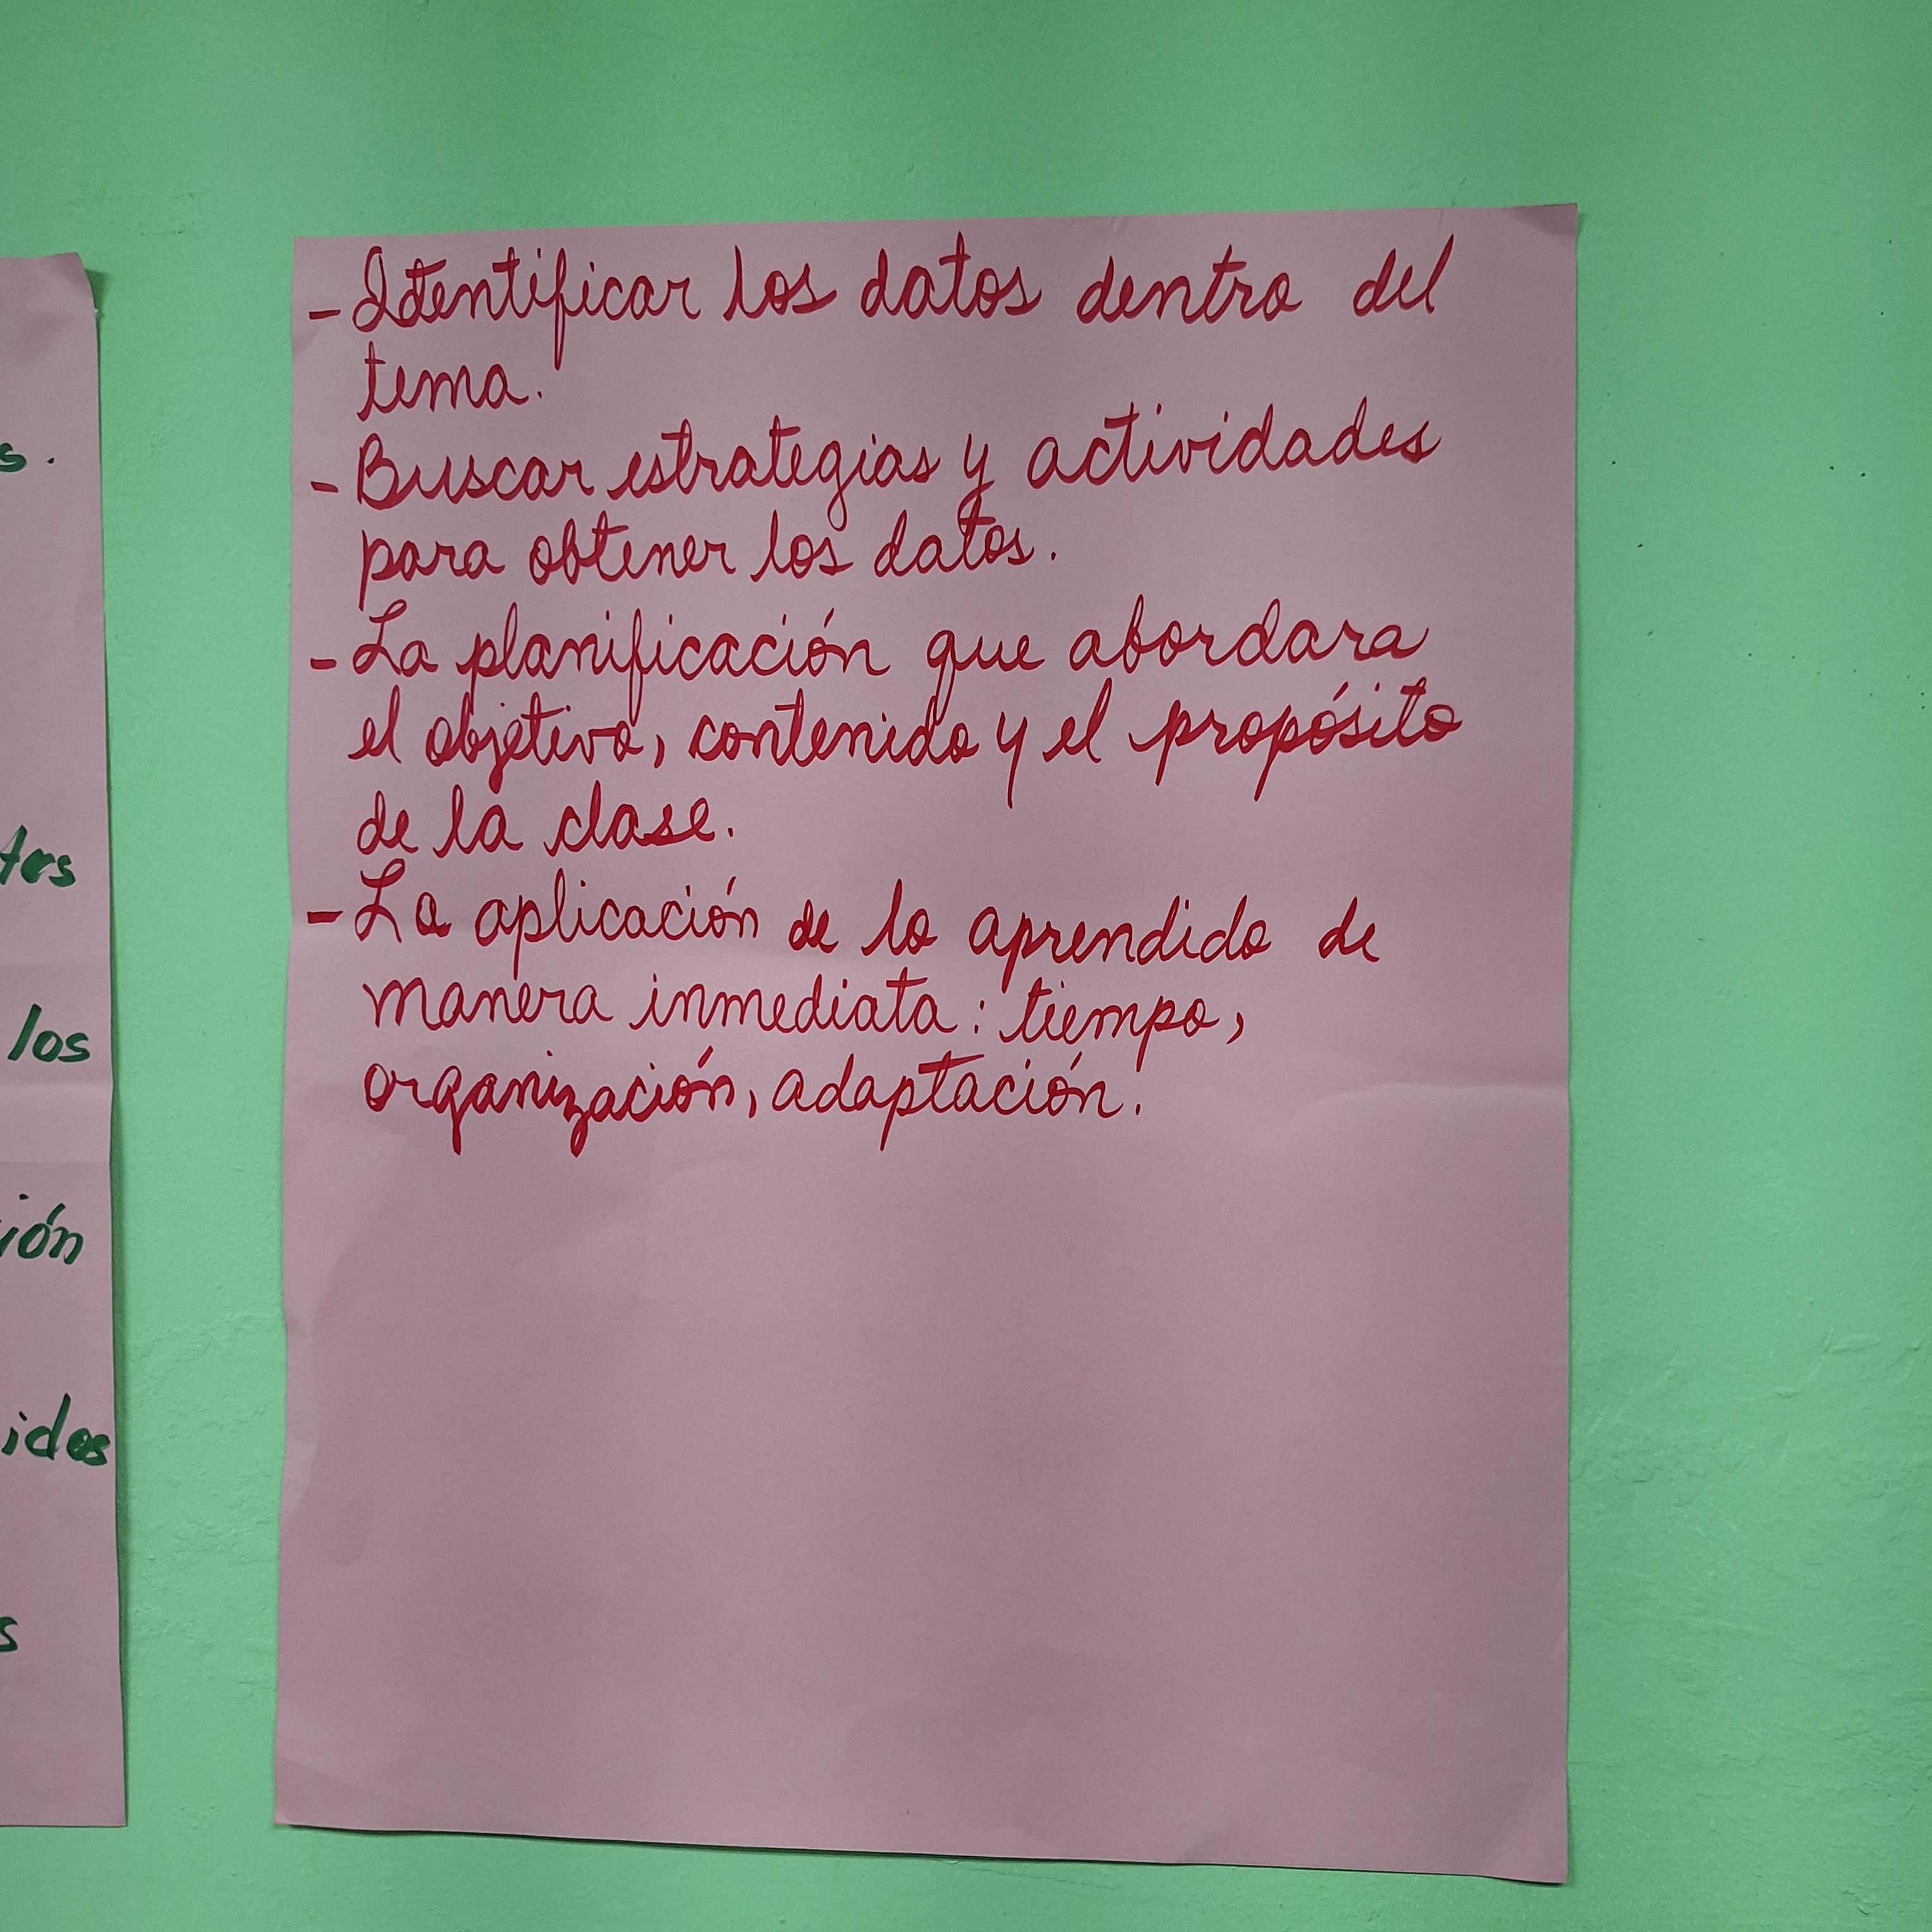 - Identificar los datos dentro del
tema.
- Buscar estrategias y actividades
para obtener los datos.
- La planificación que abordara
el objetivo, contenido y el propósito
de la clase.
- La aplicación de lo aprendido de
manera inmediata: tiempo,
organización, adaptación.
s.
tes
los
ión
idos
s